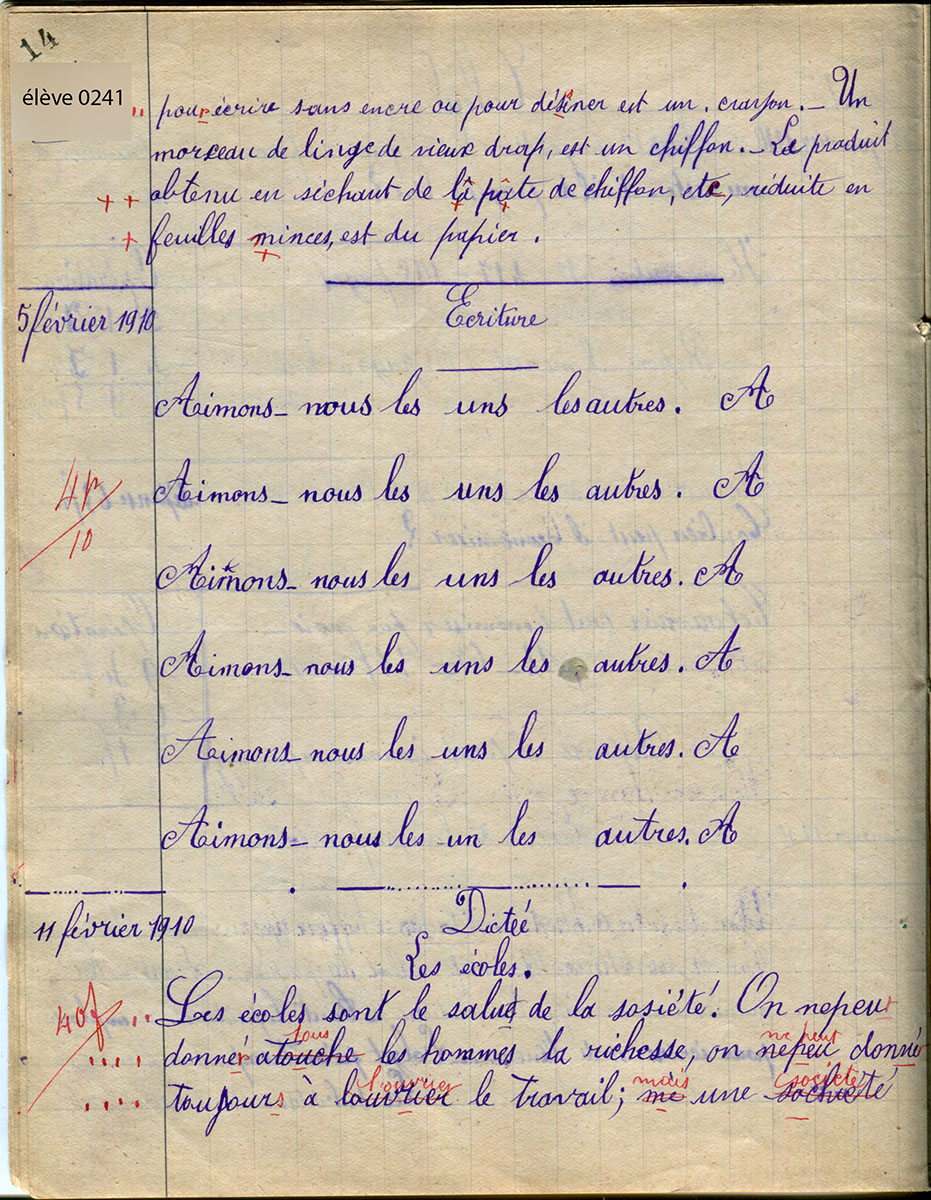 14
élève 0241
pour écrire sans encre ou pour désiner est un crayon. — Un
morceau de linge de vieux drap, est un chiffon. — Le produit
obtenu en séchant de la pâte de chiffon, etc, réduite en
feuilles minces, est du papier.
5 février 1910
Ecriture
Aimons-nous les uns les autres. A
Aimons-nous les uns les autres. A
10
Aimons-nous les uns les autres. A
Aimons-nous les uns les autres. A
Aimons-nous les uns les autres. A
Aimons-nous les un les autres. A
11 février 1910
Dictée
Les écoles.
Les écoles sont le salut de la sosiété. On nepeut
tous ne peut
donner atouche les hommes la richesse, on nepeu donner
l'ouvrier mais société
toujours à louvrier le travail; me une